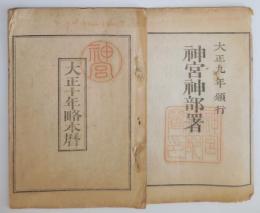 神宮
大正十年略本暦
大正九年頒行
神宮神部署